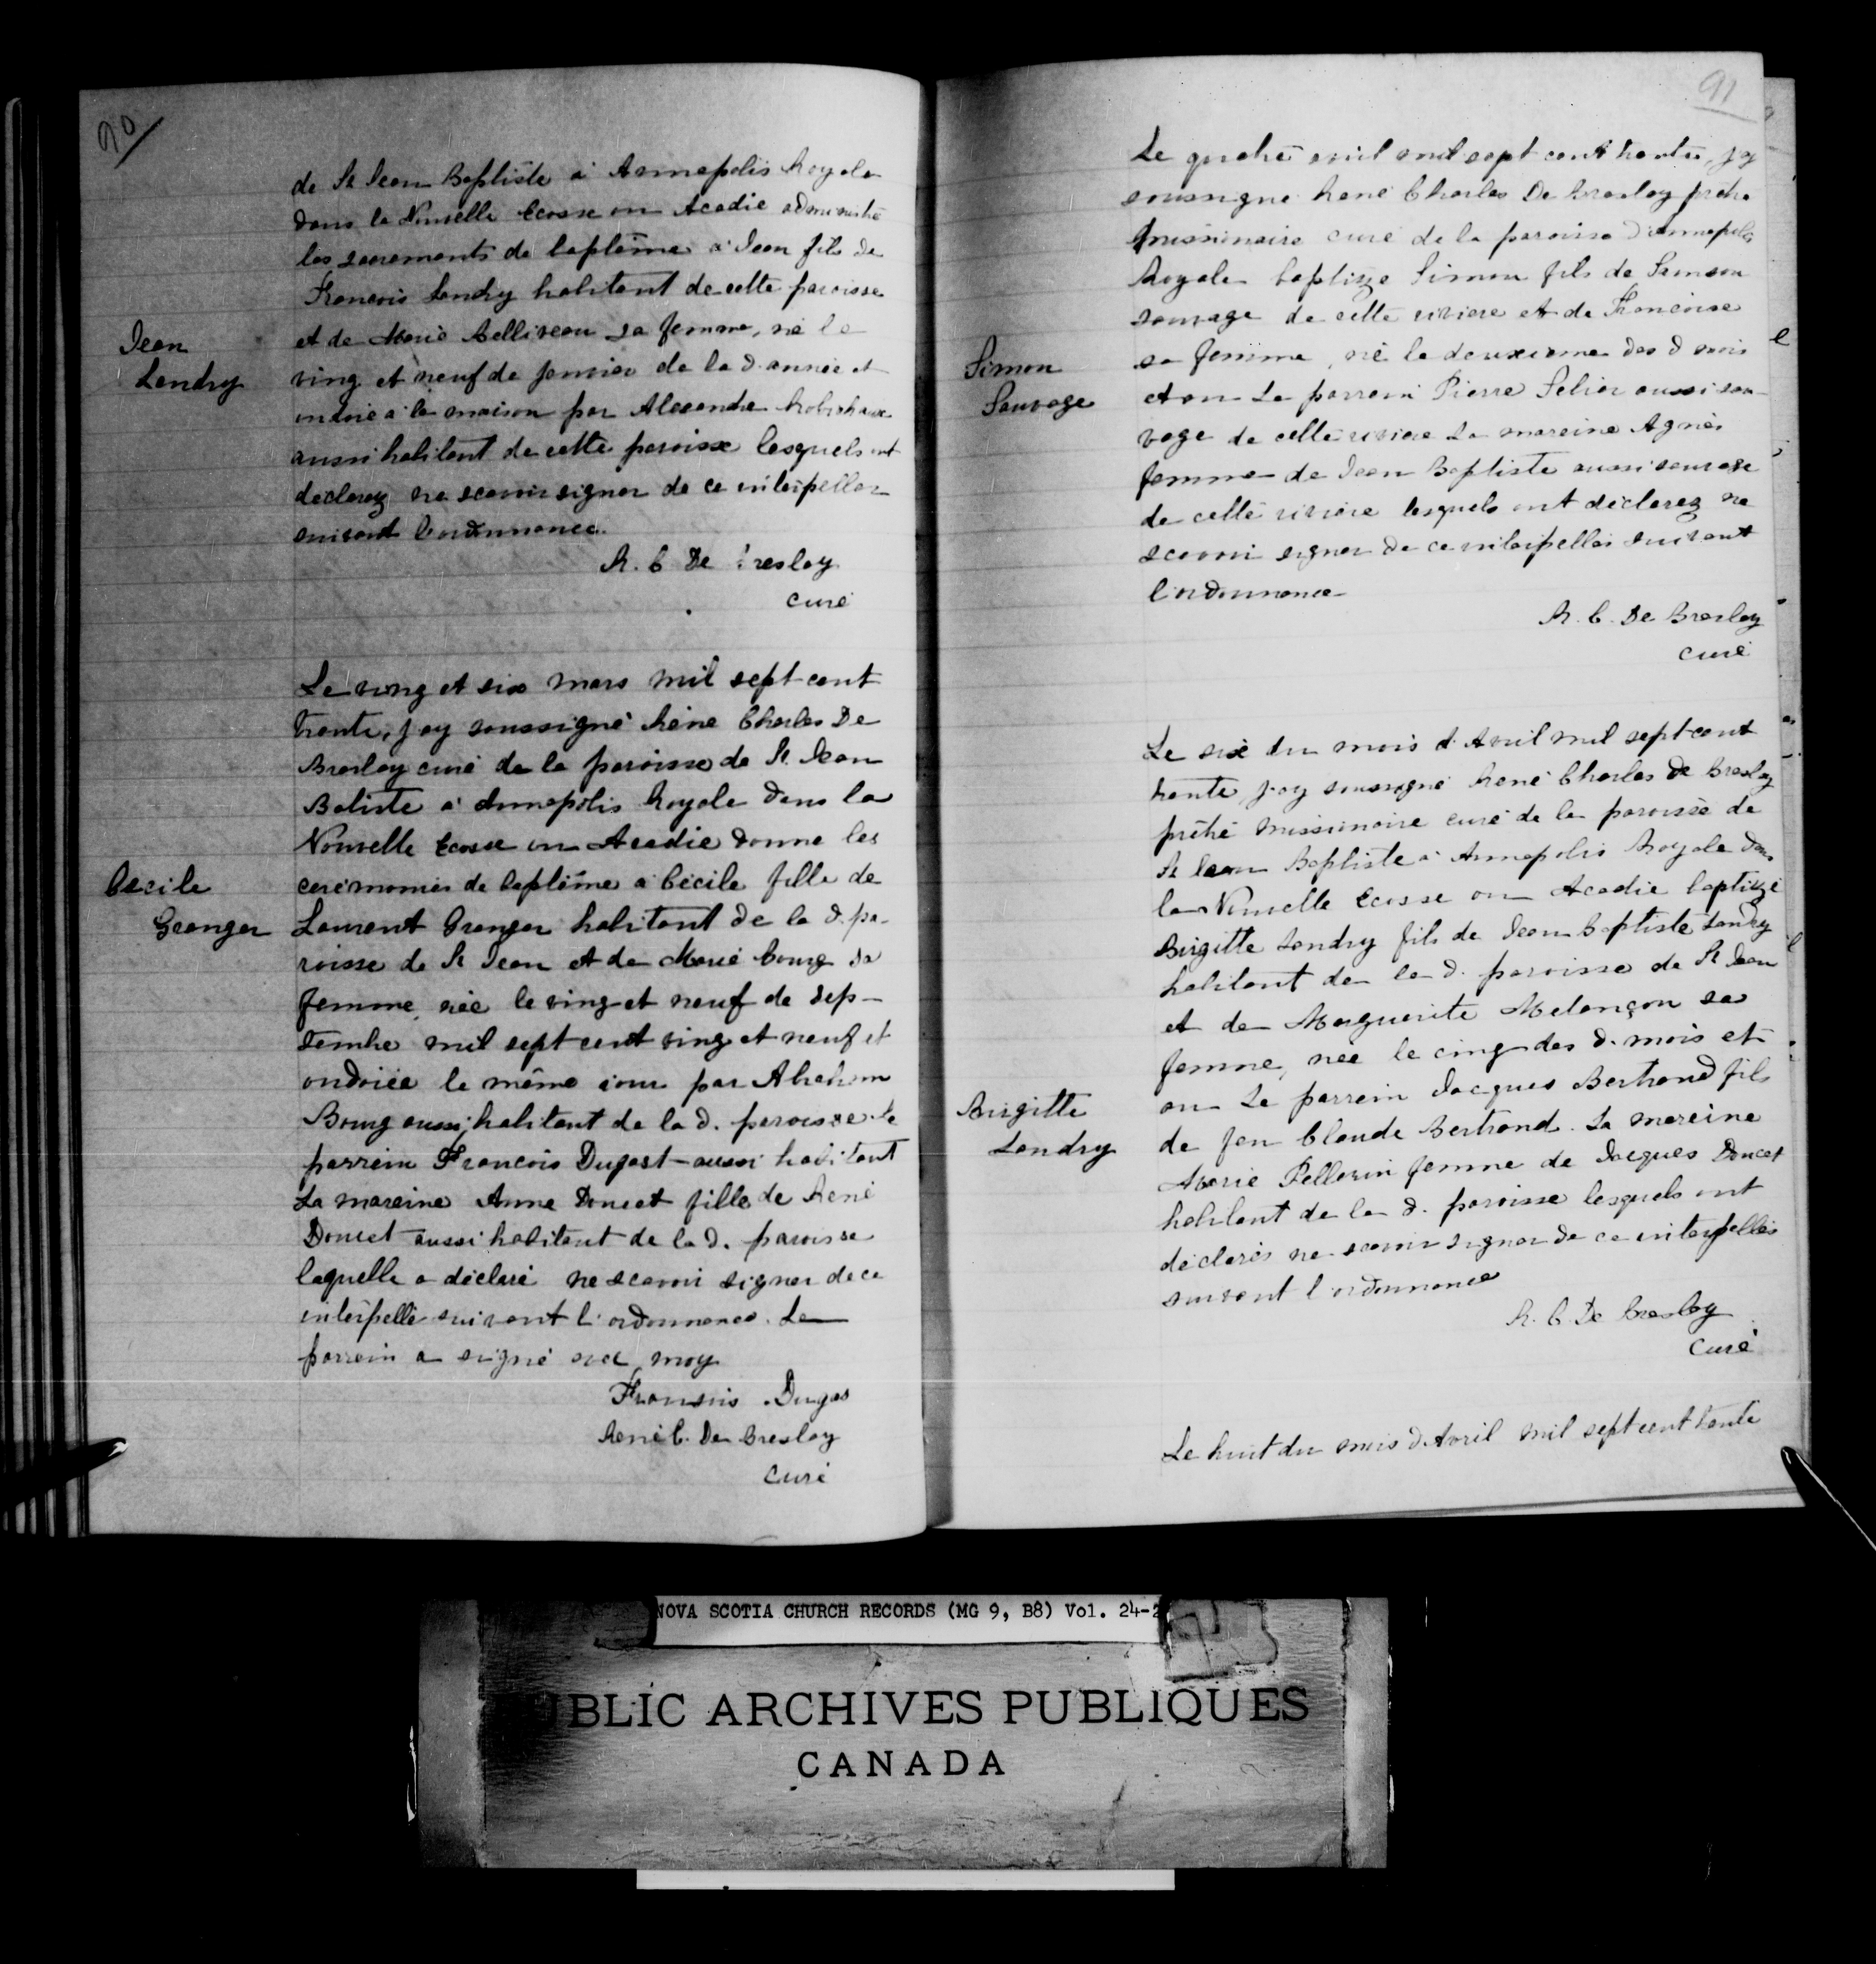 90
de St Jean Baptiste à Annapolis Royale
dans la Nouvelle Ecosse ou Acadie administré
les sacrements de baptême a Jean fils de
Francois Landry habitant de cette paroisse
et de Marie Belliveau sa femme, né le
ving et neuf de janvier de la d. année et
ondoié a la maison par Alexandre Robichaux
aussi habitant de cette paroisse lesquels ont
declarez ne scavoir signer de ce interpeller
suivant l'ordonnance.
Jean
Landry
R. C De Breslay
curé
Le ving et six mars mil sept cent
trente, j'ay soussigné Réne Charles De
Breslay curé de la paroisse de St. Jean
Batiste a Annapolis Royale dans la
Nouvelle Ecosse ou Acadie donne les
ceremonies de baptême a Cécile fille de
Laurent Granger habitant de la d. pa-
roisse de St Jean et de Marie Bourg sa
femme, née le ving et neuf de sep-
tembre mil sept cent ving et neuf et
ondoiée le même jour par Abraham
Bourg aussi habitant de la d. paroisse le
parrein Francois Dugast aussi habitant
La mareine Anne Doucet fille de René
Doucet aussi habitant de la d. paroisse
laquelle a déclaré ne scavoir signer de ce
interpellé suivant l'ordonnance. Le
parrein a signé avec moy
Cecile
Granger
Fransois Dugas
René C. De Breslay
Curé
91
Le quatre avil mil sept cent trente, j'ay
soussigne René Charles De Breslay prêtre
missionnaire curé de la paroisse d'annapolis
Royale baptizé Simon fils de Samson
sauvage de cette riviere et de Francoise
sa femme, né le deuxieme des d mois
et an Le parrein Pierre Selier aussi sau-
vage de cette riviere La mareine Agnès
femme de Jean Baptiste aussi sauvage
de cette riviere lesquels ont déclarez ne
scavoir signer de ce interpellés suivant
l'ordonnance
Simon
Sauvage
R. C. De Breslay
curé
Le six du mois d'Avril mil sept cent
trente, j'ay soussigné René Charles de Breslay
prêtre missionaire curé de la paroisse de
St Jean Baptiste a Annapolis Royale dans
la Nouvelle Ecosse ou Acadie baptizé
Birgitte Landry fils de Jean Baptiste Landry
habitant de la d. paroisse de St Jean
et de Marguerite Melançon sa
femme, née le cinq des d. mois et
an Le parrein Jacques Bertrand fils
de feu Claude Bertrand. La mareine
Marie Pellerin femme de Jacques Doucet
habitant de la d. paroisse lesquels ont
déclarés ne scavoir signer de ce interpellés
suivant l'ordonnance
Birgitte
Landry
R. C. De Breslay
Curé
Le huit du mois d'Avril mil sept cent trente
NOVA SCOTIA CHURCH RECORDS (MG 9, B8) Vol. 24-2
PUBLIC ARCHIVES PUBLIQUES
CANADA